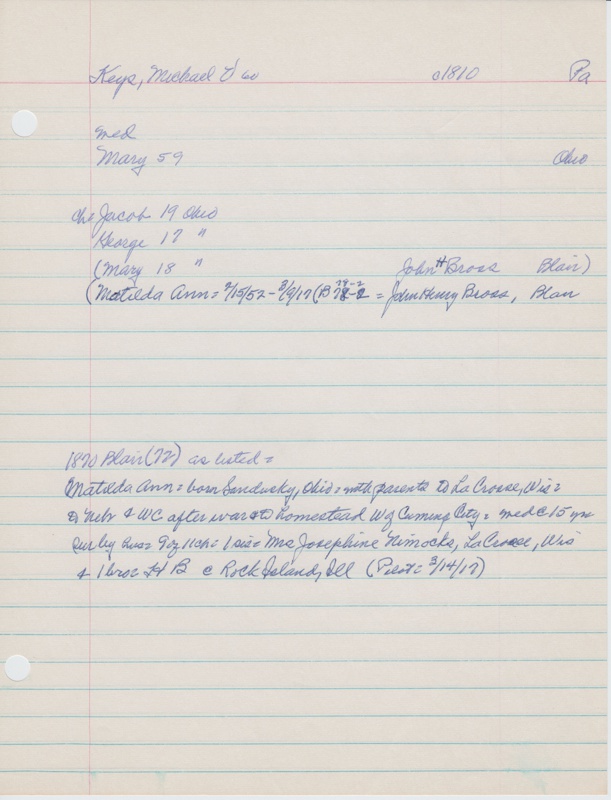 Keys, Michael 60 c1810 Pa
med
Mary 59 Ohio
chs Jacob 19 Ohio
George 17 "
(Mary 18 " John H Bross Blair)
(Matilda Ann = 2/15/52 - 3/9/17 (B 79-2 78-2 = John Henry Bross, Blair
1870 Blair (72) as listed =
Matilda Ann = born Sandusky, Ohio = with parents to La Crosse, Wis =
to Nebr & WC after war to homestead W of Cuming City = med c 15 yrs
Sur by hus = 9 of 11 ch = 1 sis = Mrs Josephine Nimocks, La Crosse, Wis
& 1 bro = H B c Rock Island, Ill (Pilot = 3/14/17)